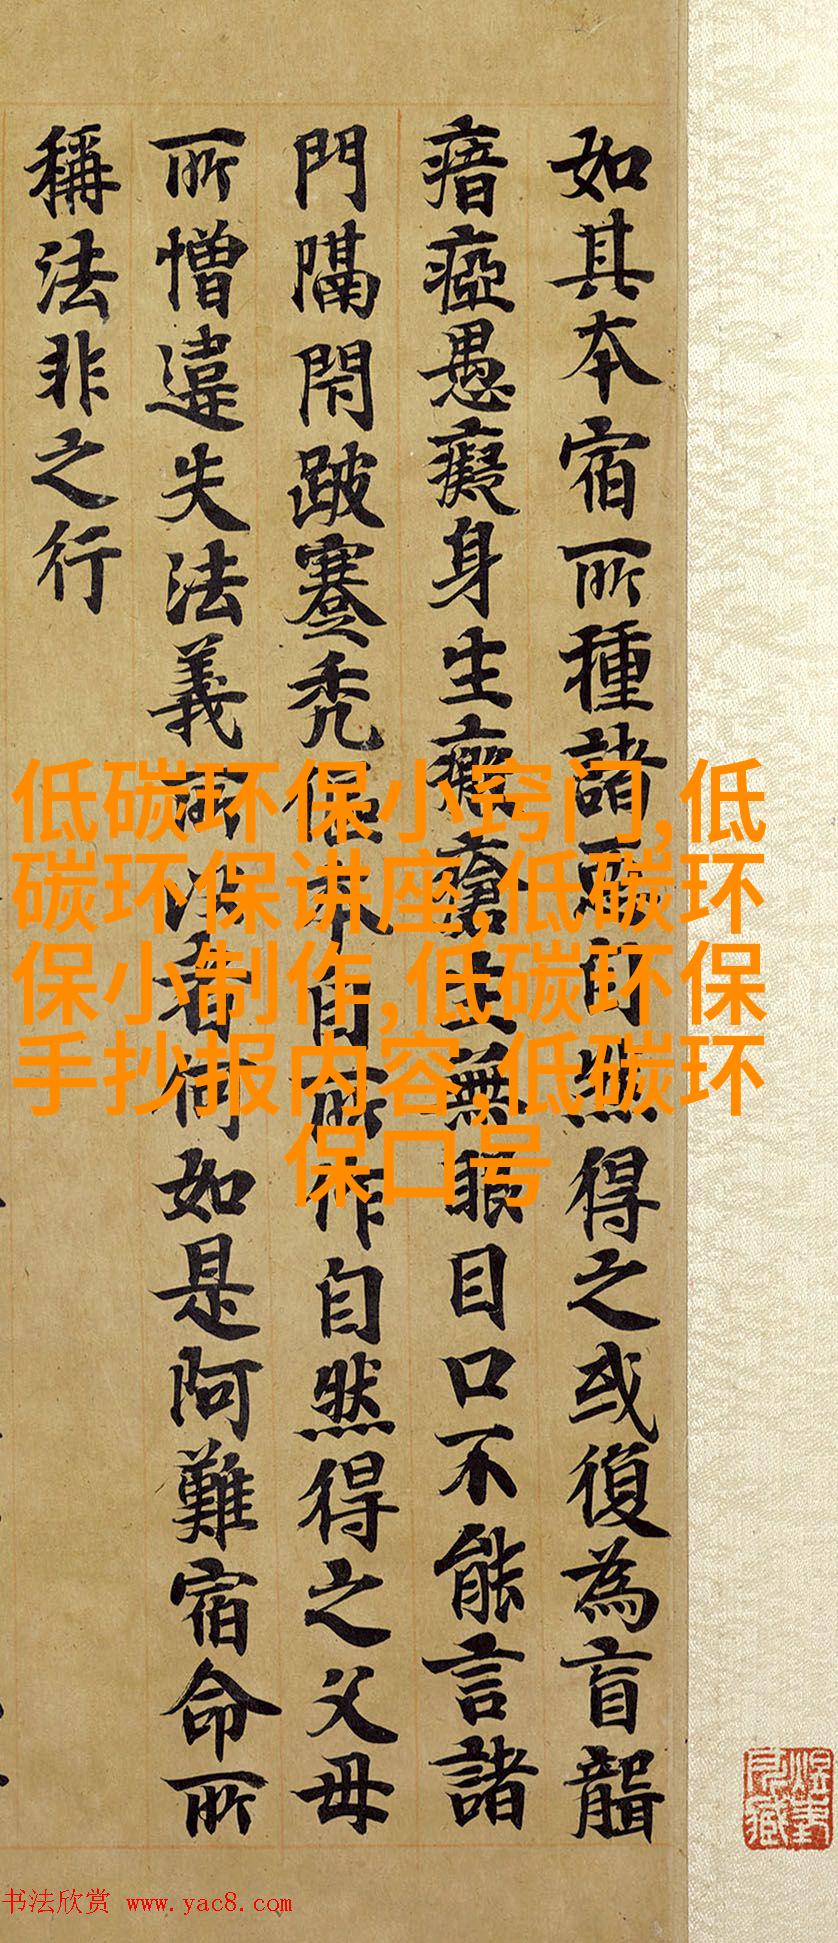 如其本宿所種諸惡自然得之或復為盲聾
瘖瘂愚癡身生癰瘡生無眼目口不能言諸
門隔閇跛蹇秃傴本自所作自然得之父母
所憎違失法義所以者何如是阿難宿命所
稱法非之行
低碳环保小窍门,低
碳环保讲座,低碳环
保小制作,低碳环保
手抄报内容,低碳环
保口号
书法欣赏 www.yac8.com